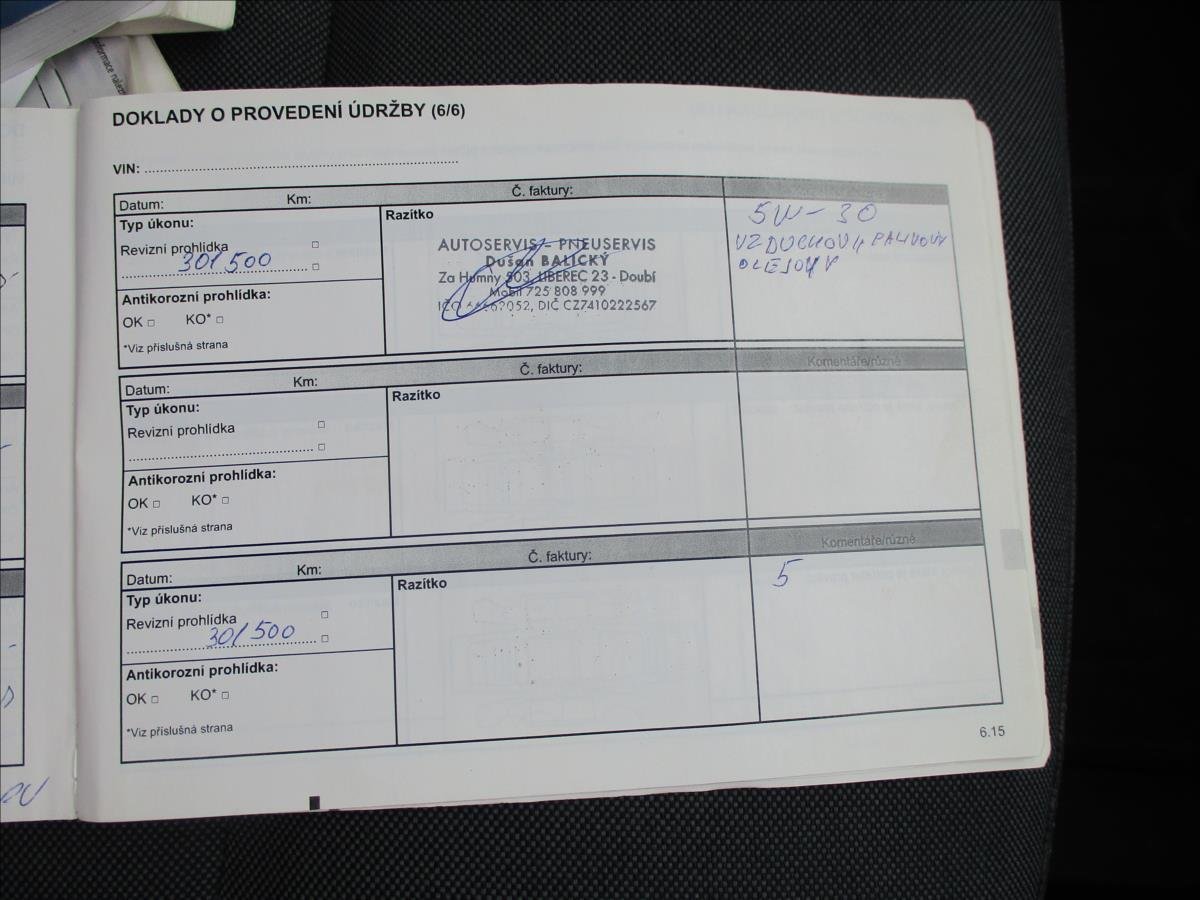 informace nalez
DOKLADY O PROVEDENÍ ÚDRŽBY (6/6)
VIN:
Datum: Km: Č. faktury:
Typ úkonu: Razítko
Revizní prohlídka
301 500
Antikorozní prohlídka:
OK □ KO* □
*Viz příslušná strana
AUTOSERVIS - PNEUSERVIS
Dušan BALICKÝ
Za Humny 503, LIBEREC 23 - Doubí
Mobil 725 808 999
DIČ CZ7410222567
5W-30
VZDUCHOVÝ PALIVOVÝ
OLEJOVÝ
Datum: Km: Č. faktury: Komentáře/různé
Typ úkonu: Razítko
Revizní prohlídka
Antikorozní prohlídka:
OK □ KO* □
*Viz příslušná strana
Datum: Km: Č. faktury: Komentáře/různé
Typ úkonu: Razítko
Revizní prohlídka
301 500
Antikorozní prohlídka:
OK □ KO* □
*Viz příslušná strana
5
6.15